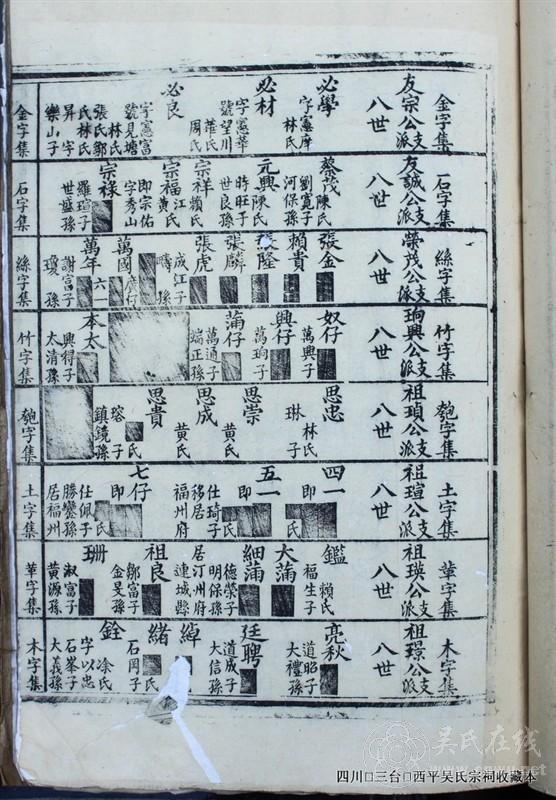 金字集
友宗公支派
八世
必學
字憲庠
林氏
必材
字憲華
號望川
華氏
必良
周氏
字憲富
號見塘
林氏
張氏鄒
氏林氏
昇字
樂山子
金字集
石字集
友誠公支派
八世
蔡茂
陳氏
劉寬子
河保孫
元興
陳氏
時旺子
世良孫
宗祥
賴氏
宗福
江氏
黃氏
即宗佑
字秀山
宗祿
羅瑄子
世盛孫
石字集
絲字集
榮茂公支派
八世
張金
賴貴
張隆
張麟
張虎
成江子
疇孫
萬國
萬年
六一
謝富子
瓊孫
絲字集
竹字集
珦興公支派
八世
奴仔
萬興子
興仔
萬珦子
蒲仔
萬通子
端正孫
本太
興得子
太清孫
竹字集
匏字集
祖瑱公支派
八世
思忠
林氏
琳子
思崇
黃氏
思成
黃氏
思貴
氏
瑢子
鎮鏡孫
匏字集
土字集
祖瑄公支派
八世
四一
即
氏
五一
即
氏
仕琦子
移居
福州府
七仔
即
氏
仕佩子
勝鑾孫
居福州
土字集
革字集
祖瑛公支派
八世
鑑
賴氏
福生子
大蒲
細蒲
德榮子
明保孫
居汀州府
連城縣
祖良
鄒富子
金旻孫
珊
淑富子
黃源孫
革字集
木字集
祖璟公支派
八世
亮秋
道昭子
大禮孫
廷聘
道成子
大信孫
綽
緒
氏
石岡子
銓
涂氏
字以忠
石峯子
大義孫
木字集
吳氏在线
www.cnwu.net
四川□三台□西平吴氏宗祠收藏本